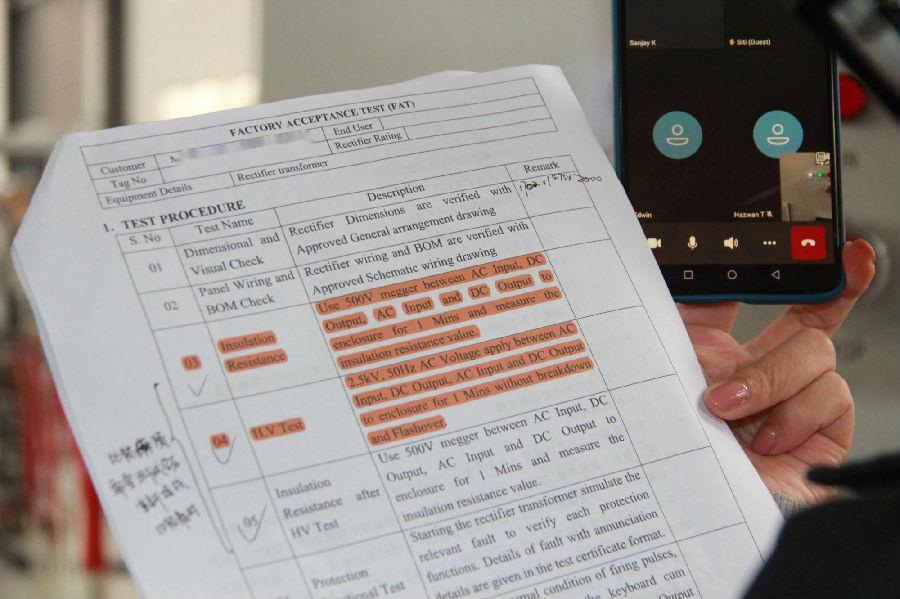 Sanjay K
Siti (Guest)
Edwin
Hazwan T
FACTORY ACCEPTANCE TEST (FAT)
Customer
End User
Tag No
Rectifier Rating
Equipment Details
Rectifier transformer
1. TEST PROCEDURE
S. No
Test Name
Description
Remark
01
Dimensional and
Visual Check
Rectifier Dimensions are verified with
Approved General arrangement drawing
02
Panel Wiring and
BOM Check
Rectifier wiring and BOM are verified with
Approved Schematic wiring drawing
03
Insulation
Resistance
Use 500V megger between AC Input, DC
Output, AC Input and DC Output to
enclosure for 1 Mins and measure the
insulation resistance value.
04
H.V Test
2.5kV, 50Hz AC Voltage apply between AC
Input, DC Output, AC Input and DC Output
to enclosure for 1 Mins without breakdown
and Flashover.
05
Insulation
Resistance after
HV Test
Use 500V megger between AC Input, DC
Output, AC Input and DC Output to
enclosure for 1 Mins and measure the
insulation resistance value.
Protection
Test
Starting the rectifier transformer simulate the
relevant fault to verify each protection
functions. Details of fault with annunciation
details are given in the test certificate format.
condition of firing pulses,
the keyboard cum
Output